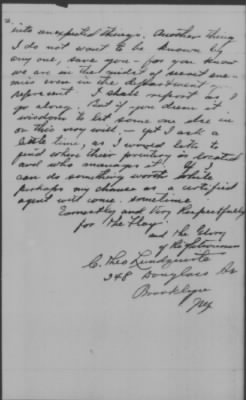 into unexpected things. Another thing
I do not want to be known by
any one, save you - for you know
we are in the midst of secret ene-
mies even in the department you
represent. I shall report as I
go along. But if you deem it
wisdom to let some one else in
on this very well. - yet I ask a
little time, as I would like to
find where their printery is located
and who manages it. If I
can do something worth while
perhaps my chance as a certified
agent will come. sometime.
Earnestly and Very Respectfully
for the Flag
and the Glory
of Righteousness
C. Theo Lundquist
248 Douglass St
Brooklyn
NY